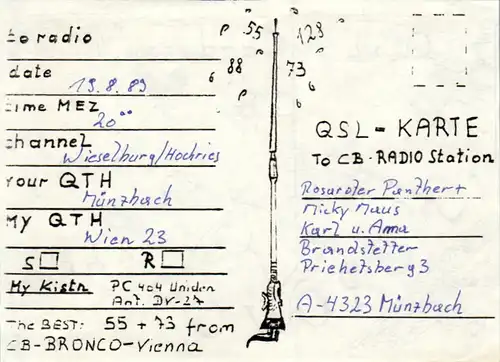 to radio
date
19.8.89
time MEZ
20°°
channel
Wieselburg/Hochries
your QTH
Münzbach
My QTH
Wien 23
S R
My Kistn PC 404 Uniden
Ant. DV-27
The BEST: 55 + 73 from
CB-BRONCO-Vienna
55 128
88 73
QSL - KARTE
To CB-RADIO Station
Rosaroter Panther +
Micky Maus
Karl u. Anna
Brandstetter
Priehetsberg 3
A-4323 Münzbach